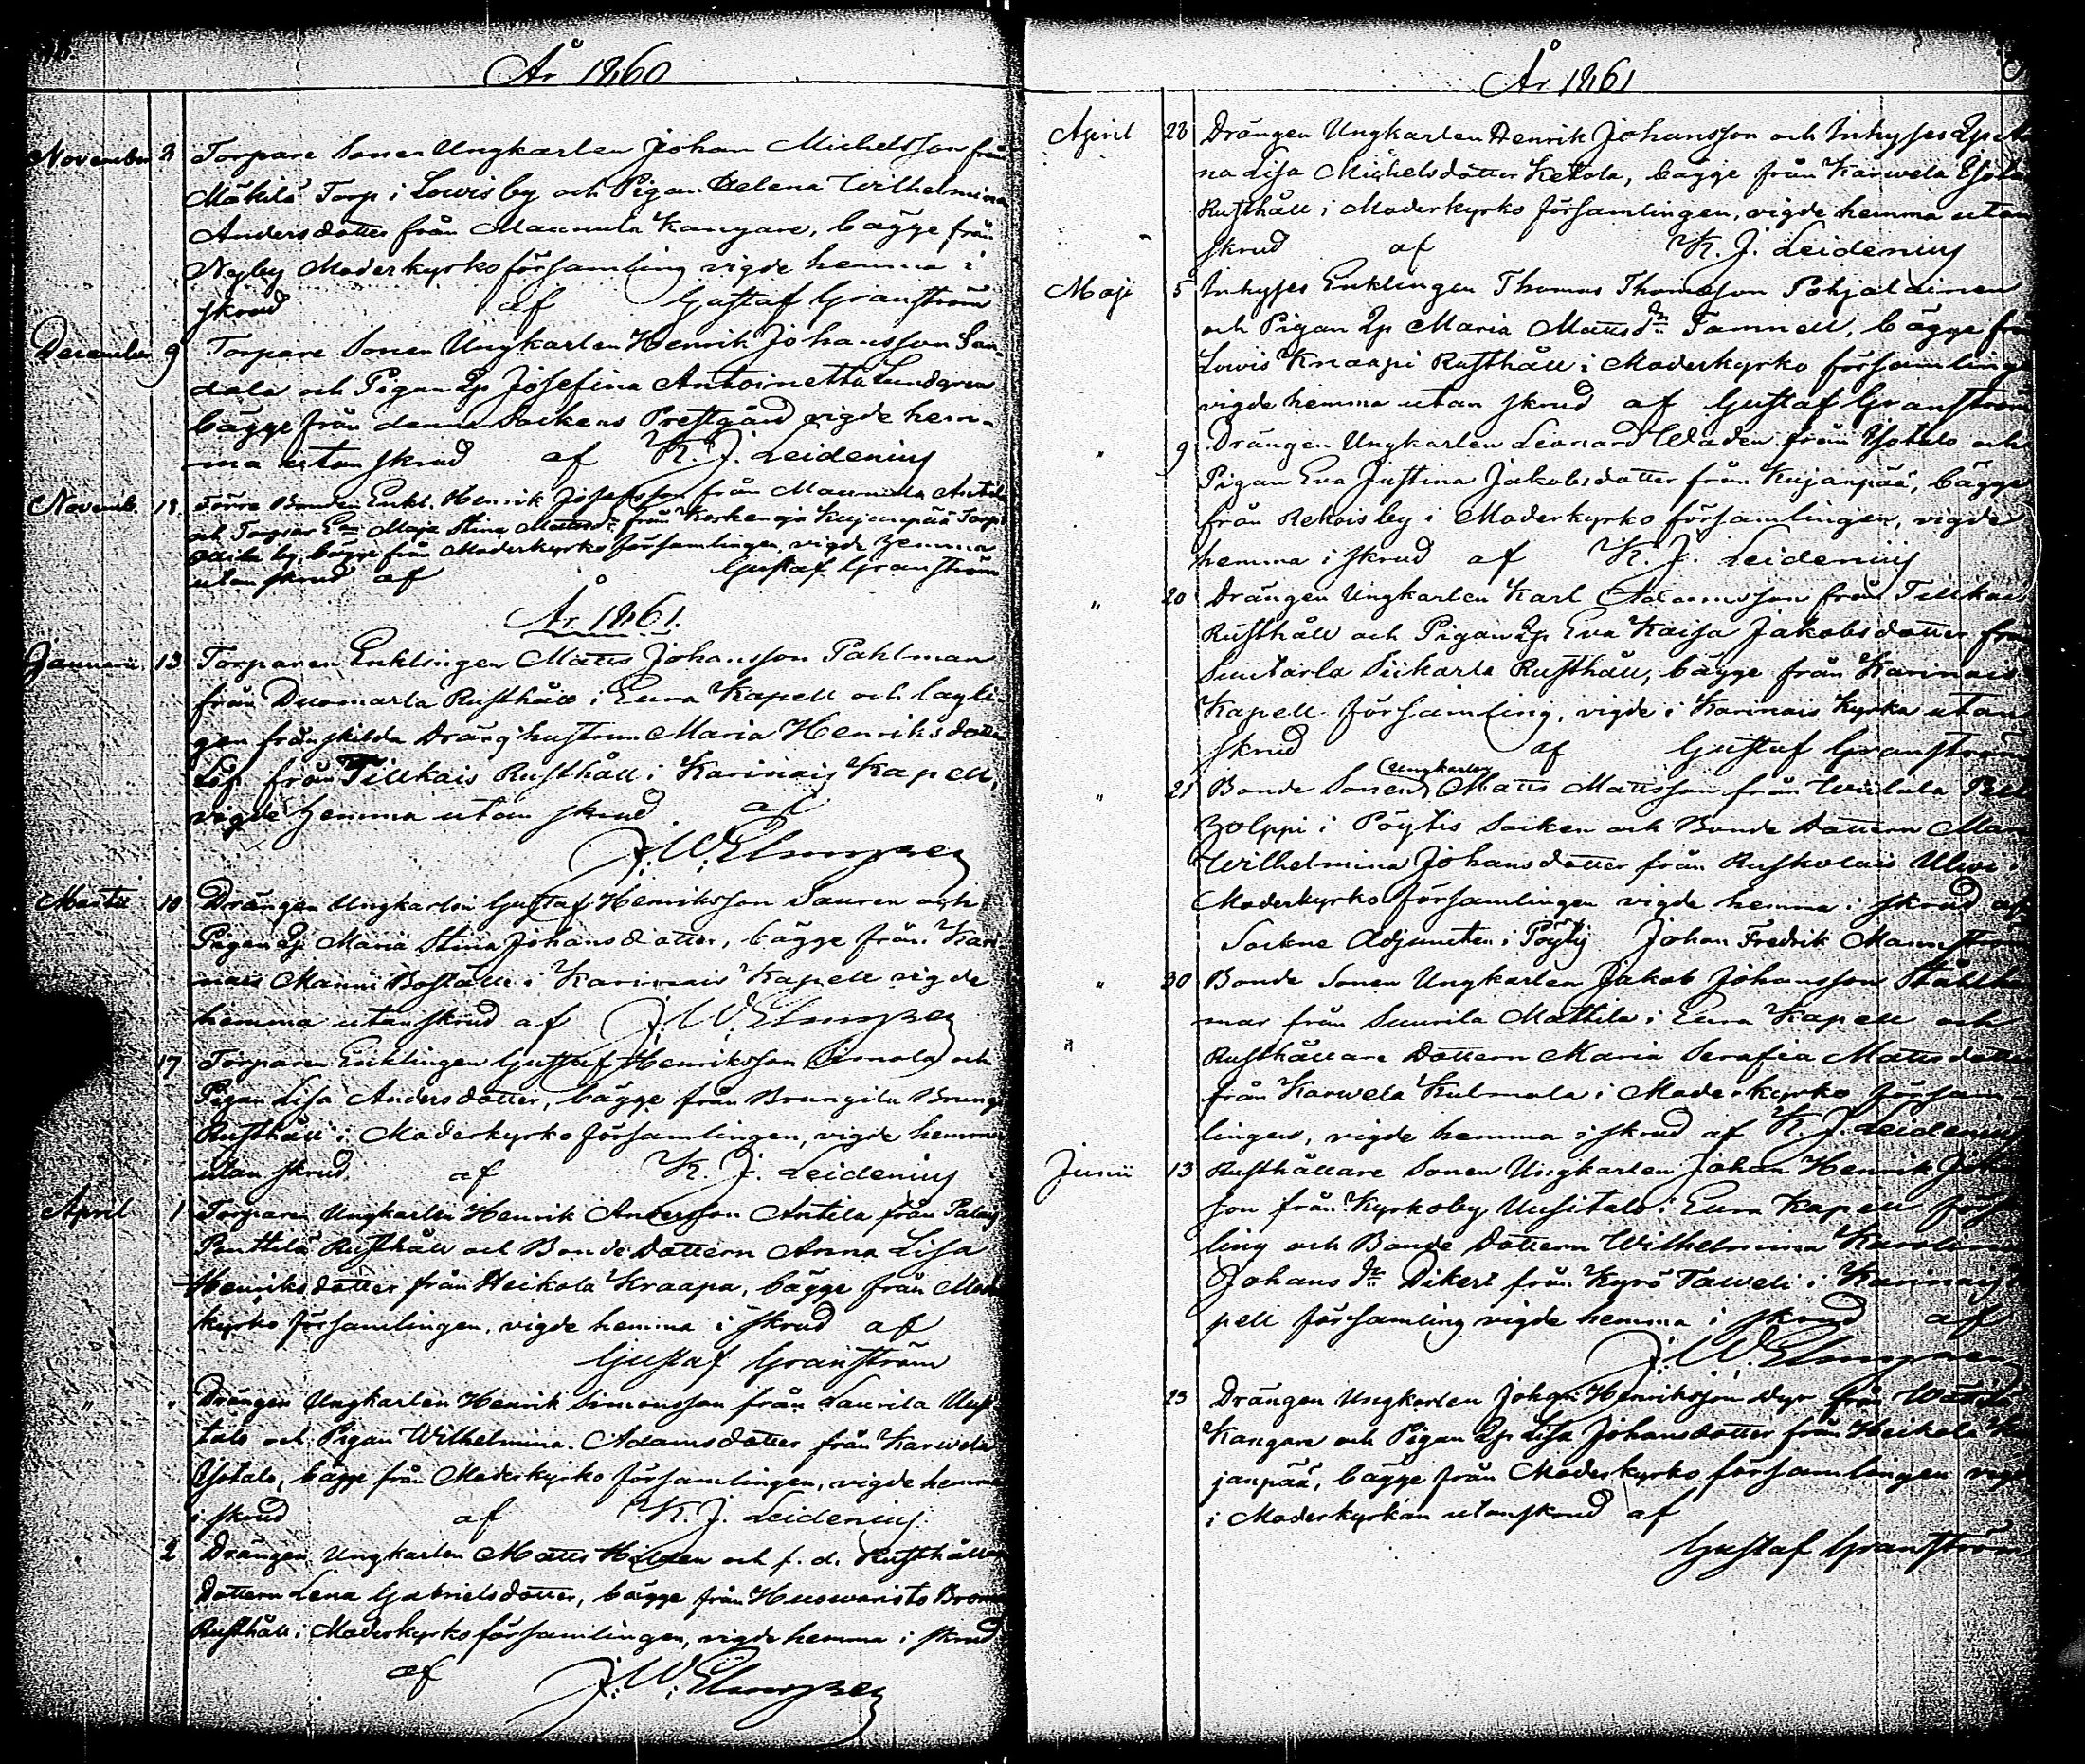 År 1860
November 3 Torpare Sonen Ungkarlen Johan Michelsson från
Mäkilä Torp i Lowis by och Pigan Helena Wilhelmina
Anders dotter från Maunula Kangare, bägge från
Moderkyrko församling vigde hemma i
skrud af Gustaf Granström
December 9 Torpare Sonen Ungkarlen Henrik Johansson San-
dala och Pigan Josefina Antoinetta Lundgren
bägge från denna Sockens Prestgård vigde hem-
ma utan skrud af K. J. Leidenius
Novemb. 18 Förre Bonden Enkl. Henrik Josefsson från Maunula
och Torpar Maja Stina från Kujanpää Torp
by, bägge från Moderkyrko församlingen, vigde hemma
utan skrud af Gustaf Granström
År 1861.
Januarii 13 Torparen Enklingen Matts Johansson Pahlman
från Duomarla Rusthåll i Eura Kapell och lagli-
gen frånskilda Dräng hustrun Maria Henriks dotter
Löf från Tillkais Rusthåll i Karinais Kapell,
vigde hemma utan skrud af
Martii 10 Drängen Ungkarlen Gustaf Henriksson Sauren och
Pigan Maria Stina Johans dotter, bägge från Kari
nais Manni Boställe i Karinais Kapell vigde
hemma utan skrud af
17 Torparen Enklingen Gustaf Henriksson och
Pigan Lisa Anders dotter, bägge från Brungila
Rusthåll i Moderkyrko församlingen, vigde hemma
utan skrud af K. J. Leidenius
April 1 Torparen Ungkarlen Henrik Andersson Antila från
Penttilä Rusthåll och Bonde Dottern Anna Lisa
Henriks dotter från Heikola Kraapa, bägge från
kyrko församlingen, vigde hemma i skrud af
Gustaf Granström
" " Drängen Ungkarlen Henrik Simonsson från Laurila Uusi
talo och Pigan Wilhelmina Adams dotter från Karwela
Ysotalo, bägge från Moderkyrko församlingen, vigde hemma
i skrud af K. J. Leidenius
" 2 Drängen Ungkarlen Matts Hildén och f. d. Rusthålla
Dottern Lena Gabriels dotter, bägge från Huowaristo
Rusthåll i Moderkyrko församlingen, vigde hemma i skrud
af
År 1861
April 28 Drängen Ungkarlen Henrik Johansson och Inhyses
na Lisa Michelsdotter Ketola, bägge från Karwela
Rusthåll i Moderkyrko församlingen, vigde hemma utan
skrud af K. J. Leidenius
Maji 5 Inhyses Enklingen Thomas Thomasson Pohjalainen
och Pigan Maria Matts dr Tamnell, bägge från
Lowis Knaapi Rusthåll i Moderkyrko församling
vigde hemma utan skrud af Gustaf Granström
" 9 Drängen Ungkarlen Leonard Waden från Ysotalo och
Pigan Eva Justina Jakobs dotter från Kujanpää, bägge
från Rekois by i Moderkyrko församlingen, vigde
hemma i skrud af K. J. Leidenius
" 20 Drängen Ungkarlen Karl Adamsson från Tillkais
Rusthåll och Pigan Eva Kaisa Jakobs dotter från
Suutarla Siikarla Rusthåll, bägge från Karinais
Kapell församling, vigde i Karinais Kyrka utan
skrud af Gustaf Granström
" 21 Bonde Sonen Ungkarlen Matts Mattsson från
i Pöytis Socken och Bonde Dottern
Wilhelmina Johans dotter från Ruskolais
Moderkyrko församlingen vigde hemma i skrud af
Sockne Adjuncten i Pöytis Johan Fredrik
" 30 Bonde Sonen Ungkarlen Jakob Johansson
mar från Suurila Mattila i Eura Kapell och
Rusthållare Dottern Maria Serafia Matts dotter
från Karwela Kulmala i Moderkyrko försam-
lingen, vigde hemma i skrud af K. J. Leidenius
Junii 13 Rusthållare Sonen Ungkarlen Johan Henrik
son från Kyrkoby Uusitalo i Eura Kapell
ling och Bonde Dottern Wilhelmina Karolina
Johans dr Dikert från Kyrö Taweli i Karinais
pell församling vigde hemma i skrud af
23 Drängen Ungkarlen Johan Henriksson från
Kangare och Pigan Lisa Johans dotter från Heikola
janpää, bägge från Moderkyrko församlingen
i Moderkyrkan utan skrud af
Gustaf Granström